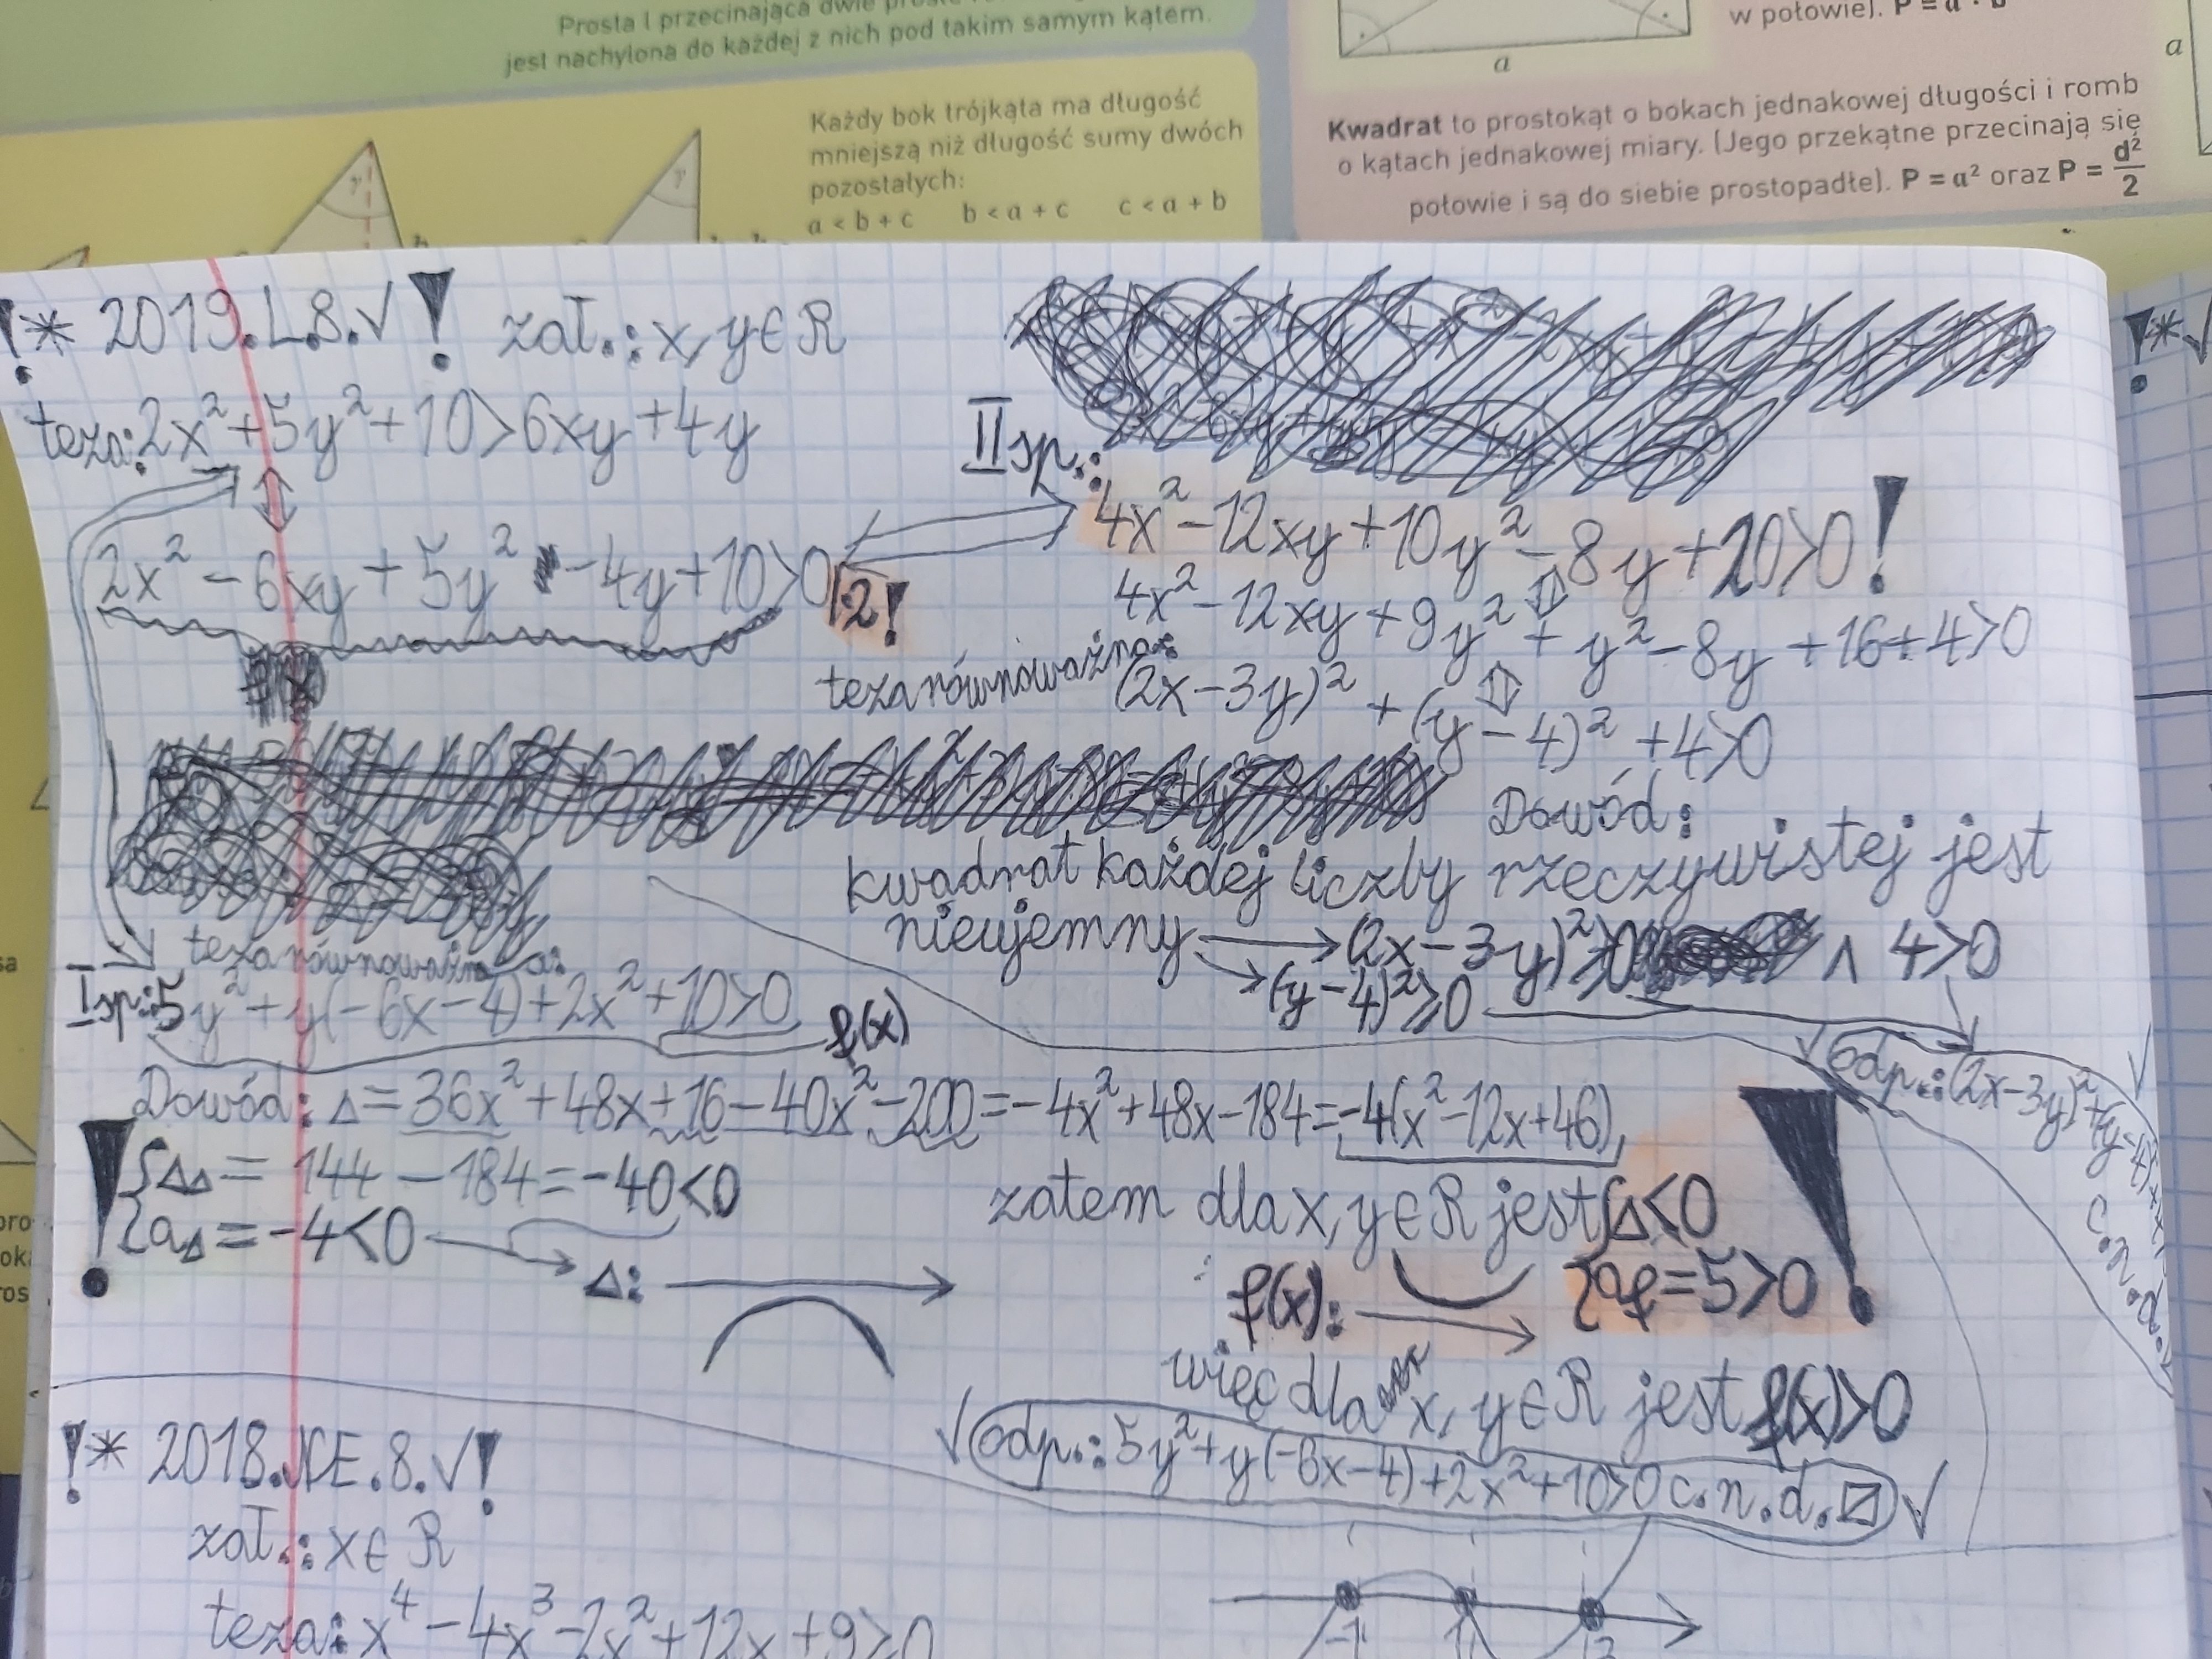 Prosta l przecinająca dwie
jest nachylona do każdej z nich pod takim samym kątem.
w połowie). P = a · b
a
a
Każdy bok trójkąta ma długość
mniejszą niż długość sumy dwóch
pozostałych:
a < b + c b < a + c c < a + b
γ
γ
Kwadrat to prostokąt o bokach jednakowej długości i romb
o kątach jednakowej miary. (Jego przekątne przecinają się
połowie i są do siebie prostopadłe). P = a² oraz P = d²/2
!* 2019.L.8.√! zał.: x, y∈R
teza: 2x²+5y²+10>6xy+4y
2x²-6xy+5y²-4y+10>0 |·2!
II sp.:
4x²-12xy+10y²-8y+20>0!
4x²-12xy+9y²+y²-8y+16+4>0
teza równoważna: (2x-3y)²+(y-4)²+4>0
Dowód:
kwadrat każdej liczby rzeczywistej jest
nieujemny → (2x-3y)²≥0 ∧ 4>0
→ (y-4)²≥0
√ odp.: (2x-3y)²+(y-4)²+4>0
c.n.d.
teza równoważna:
I sp.: 5y²+y(-6x-4)+2x²+10>0
f(x)
Dowód: Δ=36x²+48x+16-40x²-200=-4x²+48x-184=-4(x²-12x+46)
{Δ_Δ=144-184=-40<0
{a_Δ=-4<0 → Δ:
zatem dla x, y∈R jest {Δ<0
f(x): {a_f=5>0!
więc dla x, y∈R jest f(x)>0
√ odp.: 5y²+y(-6x-4)+2x²+10>0 c.n.d. √
!* 2018.NE.8.√!
zał.: x∈R
teza: x⁴-4x³-2x²+12x+9≥0
-1 1 3